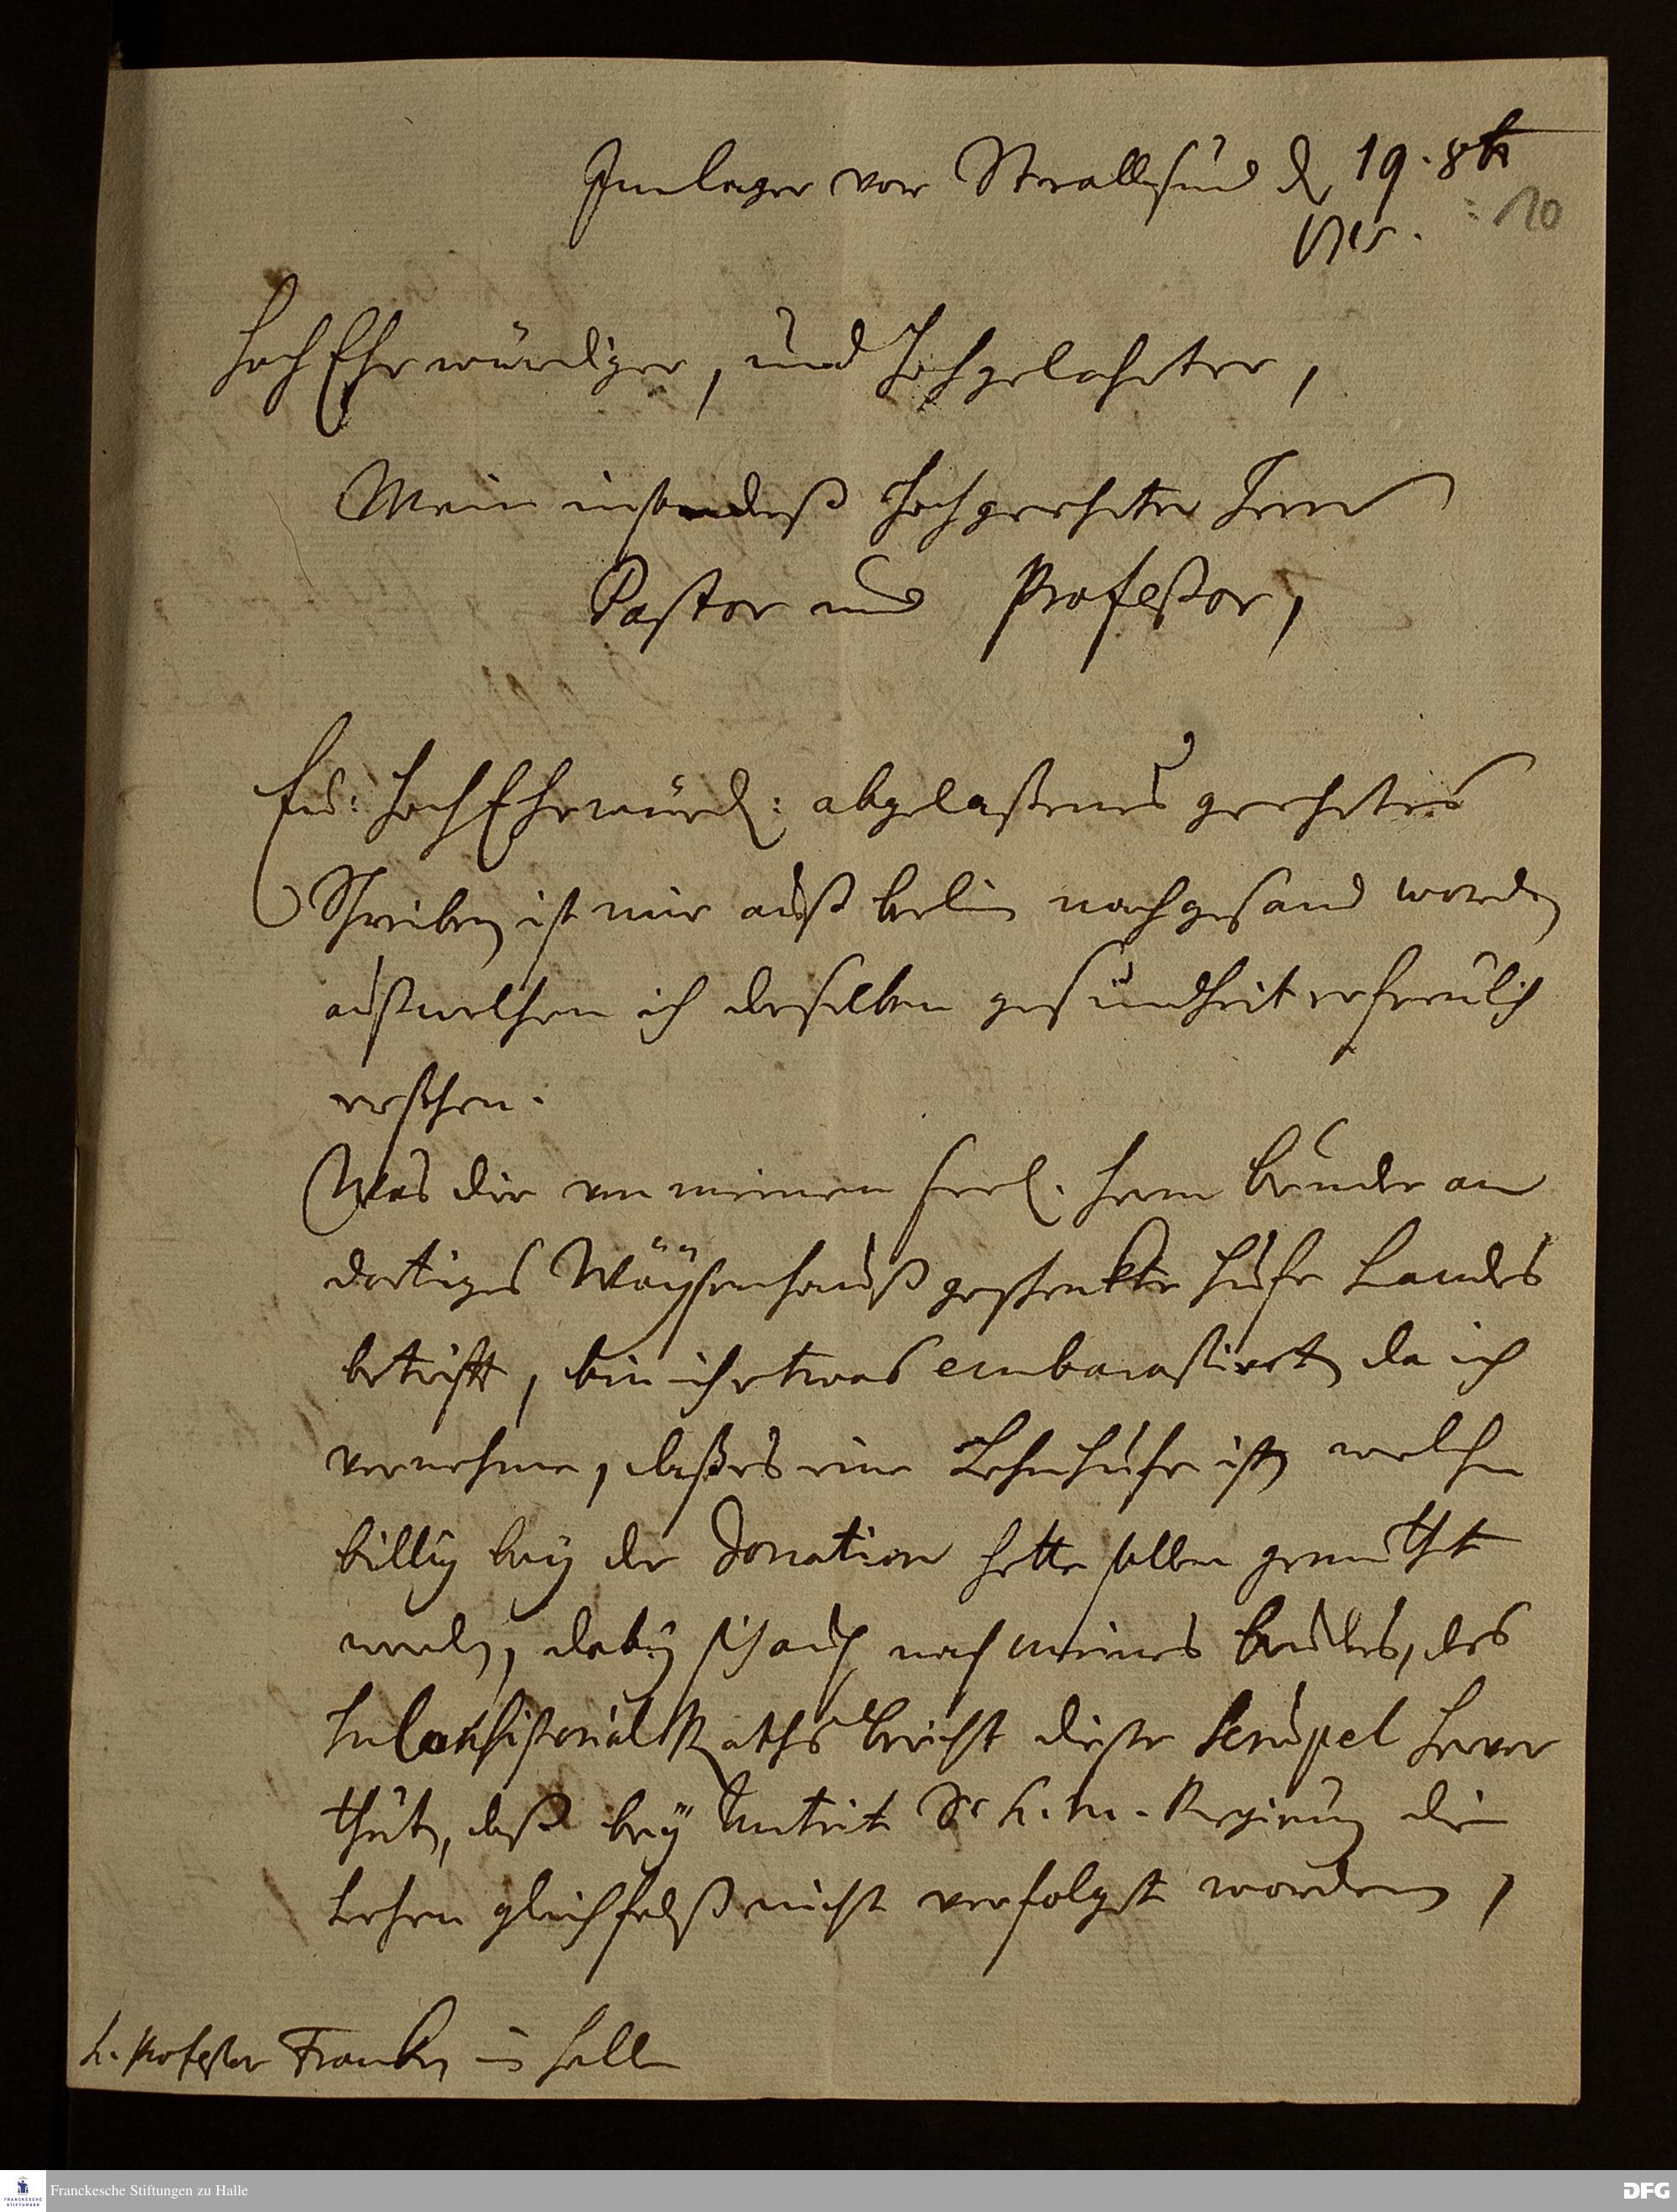 Im lager vor Strallsund d 19. 8br
1715.
: 10
HochEhrwürdiger, und Hochgelahrter,
Mein insonderß Hochgeehrter Herr
Pastor und Professor,
Ew: HochEhrwürd: abgelaßenes geehrtes
Schreiben ist mir auß berlin nachgesand worden
auß welchen ich deßelben gesundheit erfreulich
ersehen.
Was die von meinem seel. Herrn bruder an
dortiges Wäysenhauß geschenkte Hufe Landes
betrifft, bin ich etwas embarassiret, da ich
vernehme, daß es eine Lehnhufe ist, welche
billig bey der Donation hette sollen gemuthet
werden, dabey sich auch nach meines bruders, des
H. Consistorial Raths bericht dieser Scrupel hervor
thut, daß bey Antrit Sr K. M. Regirung die
Lehen gleichfalß nicht verfolgt worden,
H. Professor Francken in Halle
Franckesche Stiftungen zu Halle
FRANCKESCHE
STIFTUNGEN
DFG